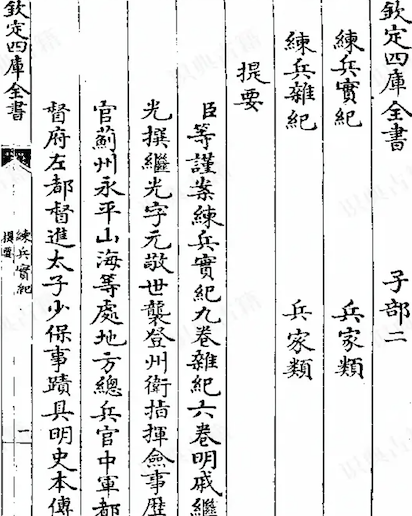 欽定四庫全書 子部二
練兵實紀 兵家類
練兵雜紀 兵家類
提要
臣等謹案練兵實紀九卷雜紀六卷明戚繼
光撰繼光字元敬世襲登州衛指揮僉事歷
官薊州永平山海等處地方總兵官中軍都
督府左都督進太子少保事蹟具明史本傳
欽定四庫全書
練兵實紀
提要
一